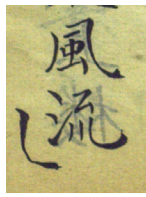 風流
し